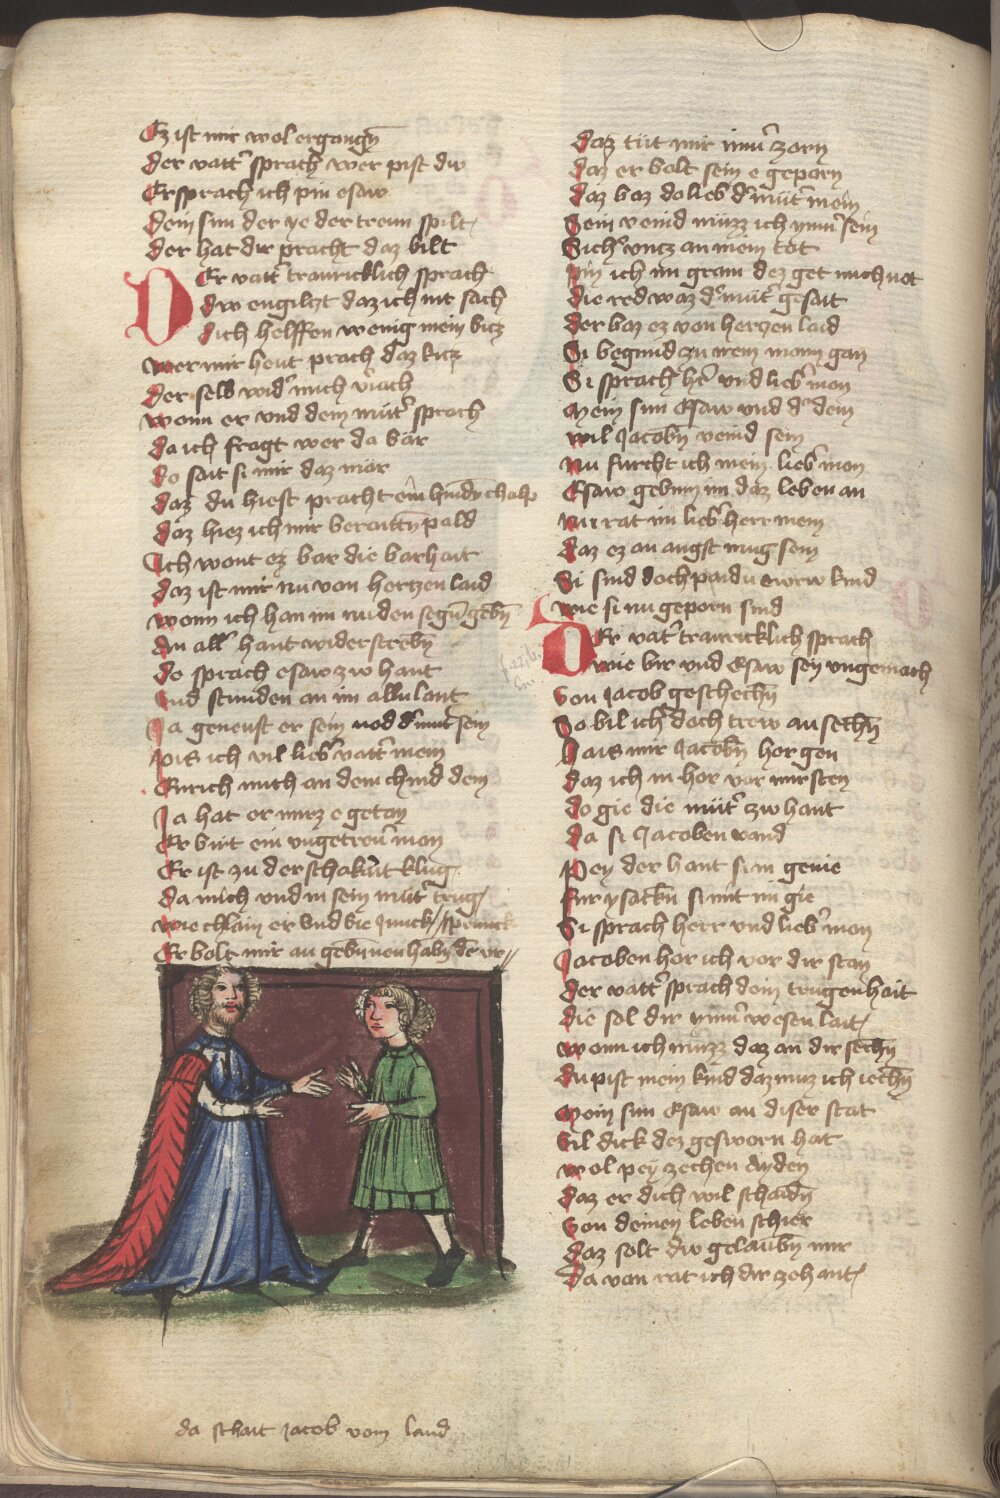 Ez ist mir wol ergangn̄
der vatt' sprach wer pist dw
Er sprach ich pin esaw
dein sun der ye der trewn spilt
der hat dir pracht daz bilt
Der vatt' trawricklich sprach
dw engiltzt daz ich nit sach
dich helffen wenig mein bicz
wer mir hewt prach daz kicz
der selb wid' mich
wann er vnd dein müt' sprach
da ich fragt wer da bar
do sait si mir daz mär
daz du hiest pracht ein
daz hiez ich mir beraittn̄ pald
Ich wont ez bar die barhait
daz ist mir nu von hertzen laid
wann ich han im nu den segn̄ gebn̄
An all' hant widerstrebn̄
do sprach esaw zw hant
vnd stunden an im allu lant
Ja geneust er sein nod d' mut' sein
pis ich vil lieb' vatt' mein
Enrich mich an dem chind dein
Ja hat er mirz e getan
Er birt ein vngetreu' man
Er ist zu der schalkait klug
da mich vnd in sein müt' trug
wie chlain er vnd
Er bolt mir an gebunnen habn̄
daz tüt mir imm' zorn
daz er bolt sein e geparn
daz baz do lieb d' müt' mein
Sein veind müzz ich ymm' sein
Sich' vncz an mein tot
pin ich im gram dez get mich not
die red waz d' müt' gesait
der baz ez von hertzen laid
Si begund zu irem mann gan
Si sprach h'r vnd lieb' man
Mein sun Esaw vnd d' dein
wil Jacobn̄ veind sein
Nu furcht ich mein lieb' man
Esaw gebinn im daz leben an
Nu rat im lieb' herr mein
daz ez an angst mug sein
Si sind doch paidu ewrw kind
wie si nu geporn sind
Der vat' trawricklich sprach
wie bir vnd Esaw sey vngemach
von Jacob geschechn̄
So bil ich doch trew an sechn̄
Hais mir Jacobn̄ her gen
daz ich in hor vor mir sten
do gie die müt' zw hant
da si Jacoben vand
Pey der hant si in genie
fur ysackn̄ si mit im gie
Si sprach herr vnd lieb' man
Jacoben hor ich vor dir stan
der vatt' sprach dein trugenhait
die sol dir ymm' wesen lait
wann ich müzz daz an dir sechn̄
du pist mein kind daz muz ich iechn̄
Mein sun Esaw an diser stat
vil dick dez gesworn hat
wol pey zechen ayden
daz er dich wil schaidn̄
von deinen leben schier
daz solt dw gelaubn̄ mir
da van rat ich dir zehant
da schait Jacob vom land